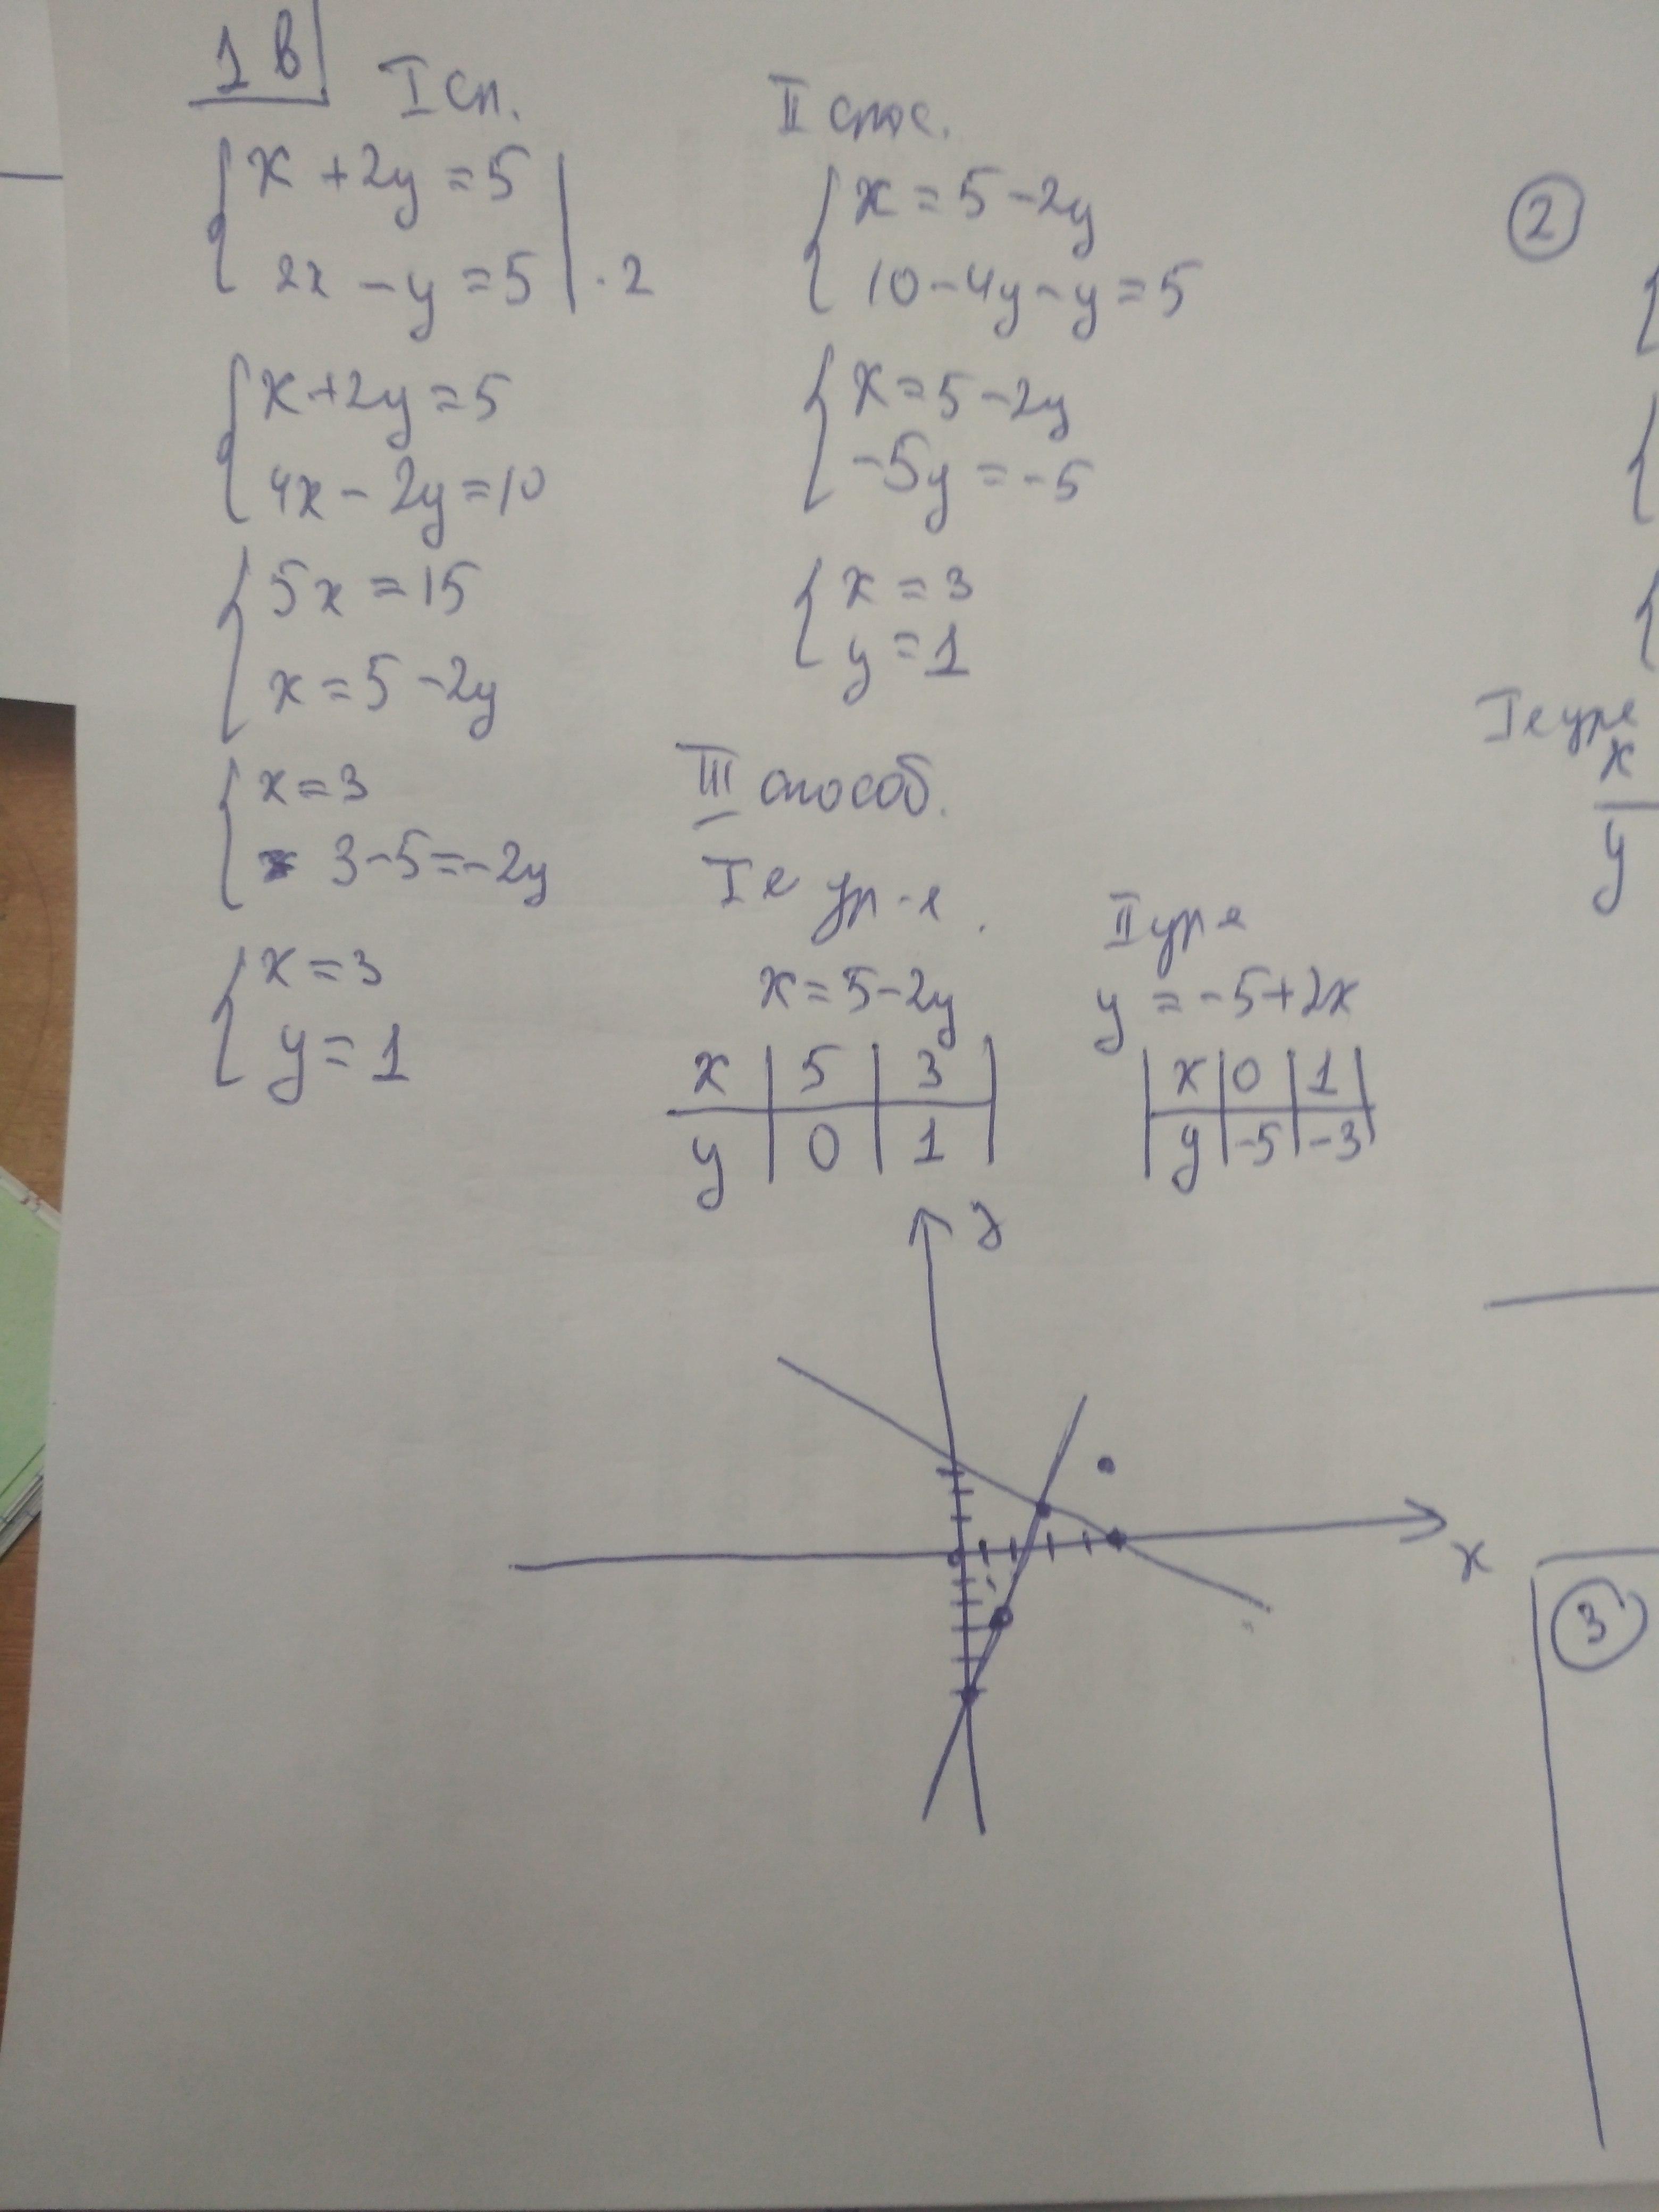 1 в
I сп.
{ x + 2y = 5 |
2x - y = 5 | · 2
{ x + 2y = 5
4x - 2y = 10
{ 5x = 15
x = 5 - 2y
{ x = 3
3 - 5 = -2y
{ x = 3
y = 1
II спос.
{ x = 5 - 2y
10 - 4y - y = 5
{ x = 5 - 2y
-5y = -5
{ x = 3
y = 1
III способ.
I е ур-е.
x = 5 - 2y
x | 5 | 3 |
y | 0 | 1 |
II ур е
y = -5 + 2x
| x | 0 | 1 |
| y | -5 | -3 |
y
x
2
I е ур е
x
y
3